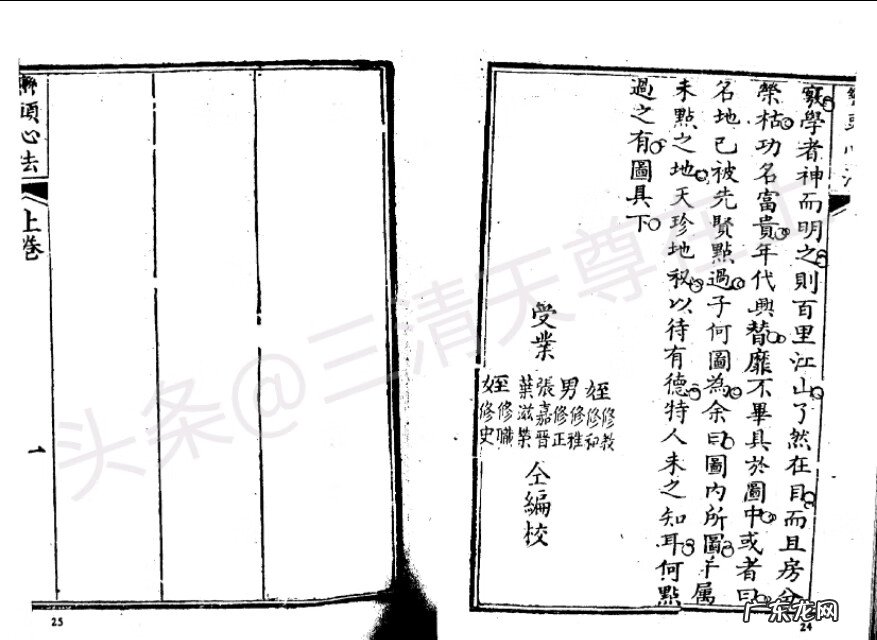 竅學者神而明之則百里江山了然在目而且房分
榮枯功名富貴年代興替靡不畢具於圖中或者曰
名地已被先賢點過子何圖為余曰圖內所圖半属
未點之地天珍地秘以待有德特人未之知耳何點
過之有圖具下
受業
姪修教
修和
男修雅
修正
張嘉晉
葉滋榮
姪修職
修史
仝編校
24
頭心法
上卷
一
25
头条@三清天尊
广东龙网